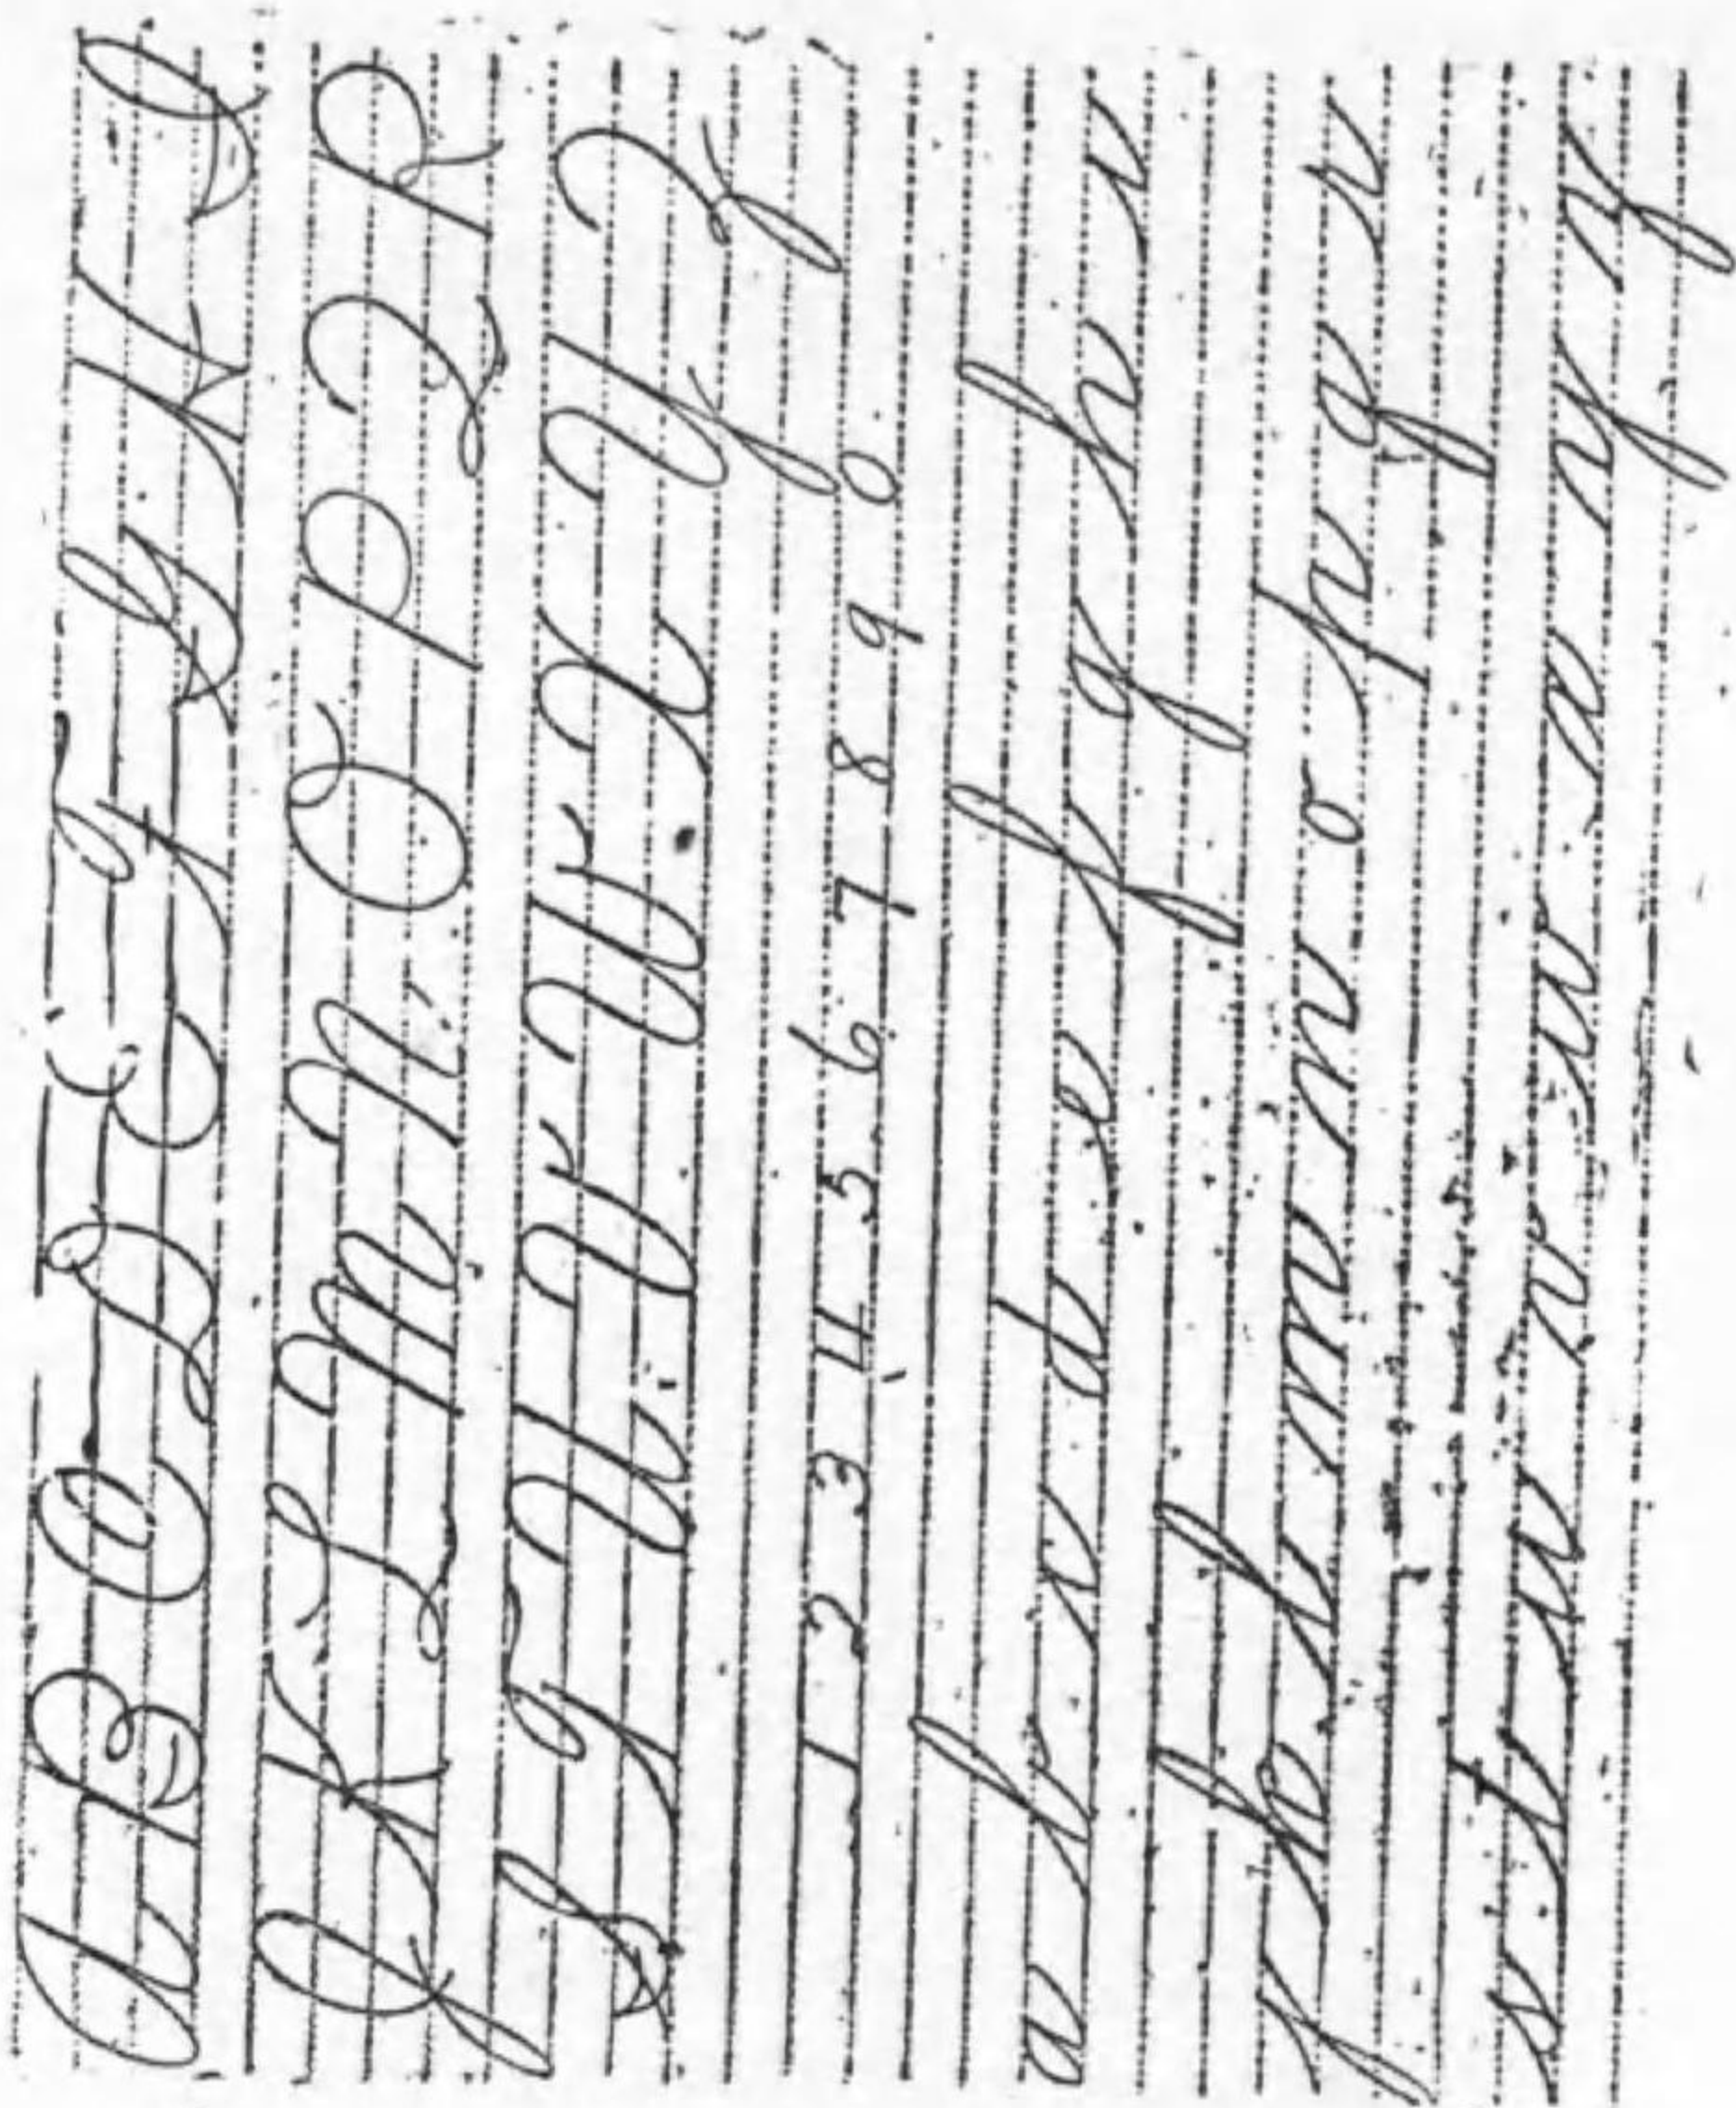 A B C D E F G H I
J K L M N O P Q R
S T U V W X Y Z
1 2 3 4 5 6 7 8 9 0
a b c d e f g h i
j k l m n o p q r
s t u v w x y z